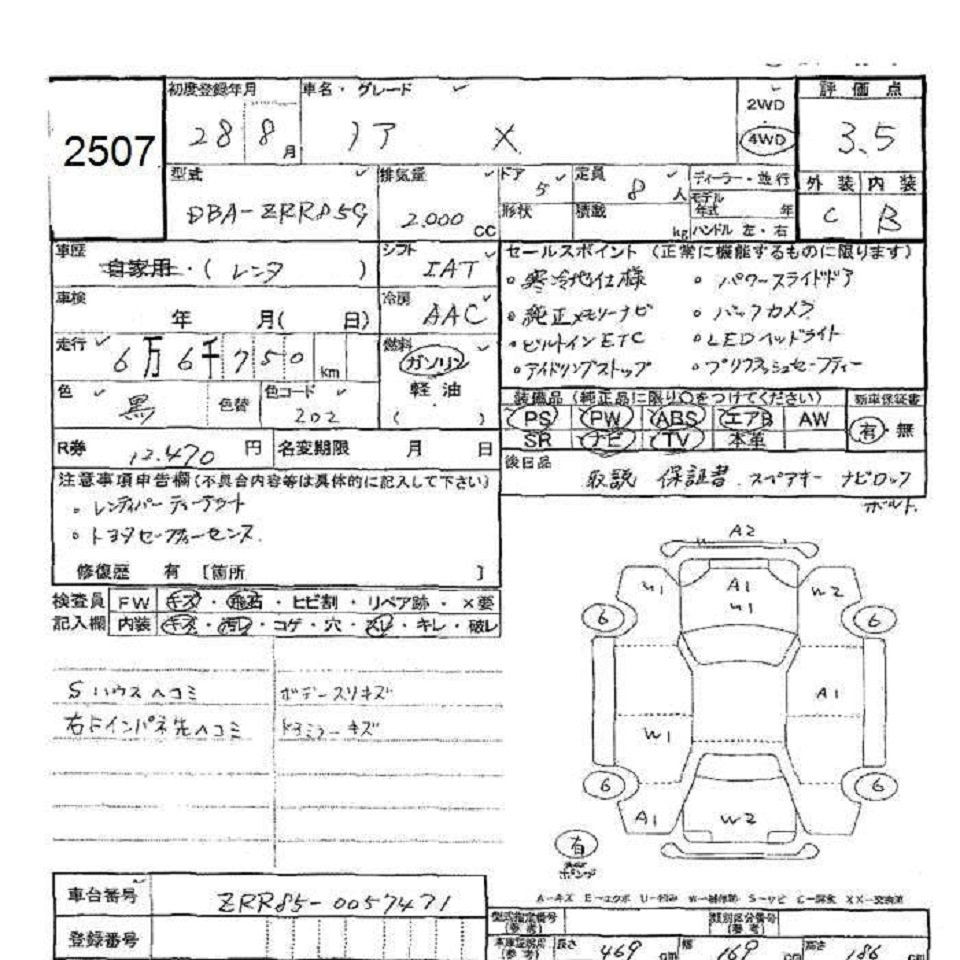 2507
初度登録年月 28 8 月
車名・グレード ノア X
2WD
4WD
評価点
3.5
型式 DBA-ZRR85G
排気量 2.000 cc
ドア 5
定員 8 人
ディーラー・並行
モデル年式 年
外装 内装
C B
形状
積載 kg
ハンドル 左・右
車歴 自家用・(レンタ)
シフト IAT
セールスポイント (正常に機能するものに限ります)
。寒冷地仕様 。パワースライドドア
車検 年 月( 日)
冷房 AAC
。純正メモリーナビ 。バックカメラ
走行 6万6千750 km
燃料 ガソリン
軽油
( )
。ビルトインETC 。LEDヘッドライト
。アイドリングストップ 。プリクラッシュセーフティー
色 黒 色替
色コード 202
装備品 (純正品に限り○をつけてください) 新車保証書
PS PW ABS エアB AW 有・無
SR ナビ TV 本革
R券 12.470 円
名変期限 月 日
後日品
取説 保証書 スペアキー ナビロック
ボルト.
注意事項申告欄(不具合内容等は具体的に記入して下さい)
。レンティバー ティーアウト
。トヨタセーフティーセンス.
修復歴 有 [箇所 ]
検査員 FW キズ・飛石・ヒビ割・リペア跡・×要
記入欄 内装 キズ・汚レ・コゲ・穴・スレ・キレ・破レ
Sハウスヘコミ ボデースリキズ
右Fインパネ先ヘコミ ドアミラーキズ
A2
U1 A1 W2
U1
6 6
A1
W1
6 6
A1 W2
有
A-キズ E-エクボ U-凹み W-補修跡 S-サビ C-腐食 XX-交換済
車台番号 ZRR85-0057471
登録番号
型式指定番号 (参考)
類別区分番号 (参考)
長さ 469 cm 幅 169 cm 高さ 186 cm